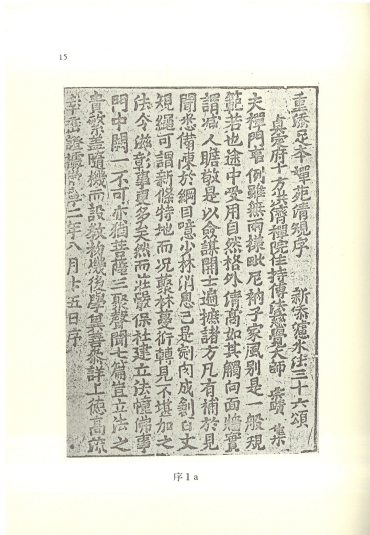 15
重添足本禪苑清規序
真定府十方洪濟禪院住持傳法慈覺大師 宗賾 集
新添濾水法三十六頌
夫禪門事例雖無兩樣毗尼衲子家風別是一般規
範若也途中受用自然格外清高如其觸向面牆實
謂減人瞻敬是以僉謀開士遍摭諸方凡有補於見
聞悉備陳於綱目噫少林消息已是剜肉成瘡百丈
規繩可謂新條特地而况叢林蔓衍轉見不堪加之
法令滋彰事更多矣然而莊嚴保社建立法幢佛事
門中闕一不可亦猶菩薩三聚聲聞七篇豈立法之
貴繁蓋隨機而設教初機後學冀善參詳上德高流
幸垂證據崇寧二年八月十五日序
序 1 a